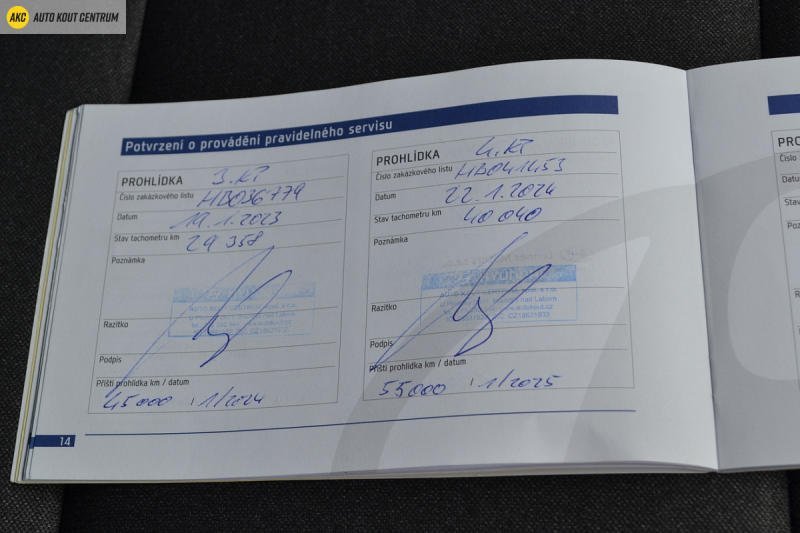 AKC AUTO KOUT CENTRUM
Potvrzení o provádění pravidelného servisu
PROHLÍDKA 3. KT
Číslo zakázkového listu HB036779
Datum 19.1.2023
Stav tachometru km 29 358
Poznámka
Razítko
Podpis
Příští prohlídka km / datum
45 000 1/2024
PROHLÍDKA 4. KT
Číslo zakázkového listu HB041453
Datum 22.1.2024
Stav tachometru km 40 040
Poznámka
nad Labem
CZ18621933
Razítko
Podpis
Příští prohlídka km / datum
55 000 1/2025
14
Číslo
Datum
Razítko
Podpis
Příští